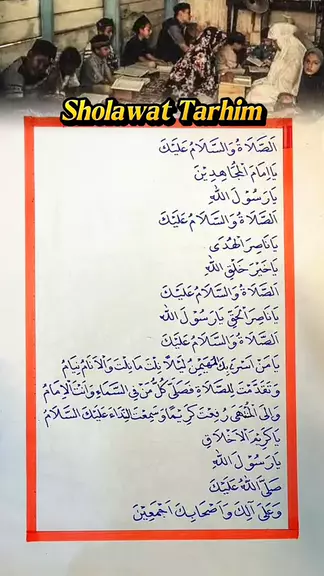 Sholawat Tarhim
اَلصَّلَاةُ وَالسَّلَامُ عَلَيْكَ
يَااِمَامَ الْمُجَاهِدِيْنَ
يَارَسُوْلَ اللهِ
اَلصَّلَاةُ وَالسَّلَامُ عَلَيْكَ
يَانَاصِرَ الْهُدَى
يَاخَيْرَ خَلْقِ اللهِ
اَلصَّلَاةُ وَالسَّلَامُ عَلَيْكَ
يَانَاصِرَ الْحَقِّ يَارَسُوْلَ اللهِ
اَلصَّلَاةُ وَالسَّلَامُ عَلَيْكَ
يَامَنْ اَسْرَى بِكَ الْمُهَيْمِنُ لَيْلًا نِلْتَ مَانِلْتَ وَالْاَنَامُ نِيَامُ
وَتَقَدَّمْتَ لِلصَّلَاةِ فَصَلَّى كُلُّ مَنْ فِى السَّمَاءِ وَاَنْتَ الْاِمَامُ
وَاِلَى الْمُنْتَهَى رُفِعْتَ كَرِيْمًا وَسَمِعْتَ نِدَاءً عَلَيْكَ السَّلَامُ
يَاكَرِيْمَ الْاَخْلَاقِ
يَارَسُوْلَ اللهِ
صَلَّى اللهُ عَلَيْكَ
وَعَلَى آلِكَ وَاَصْحَابِكَ اَجْمَعِيْنَ